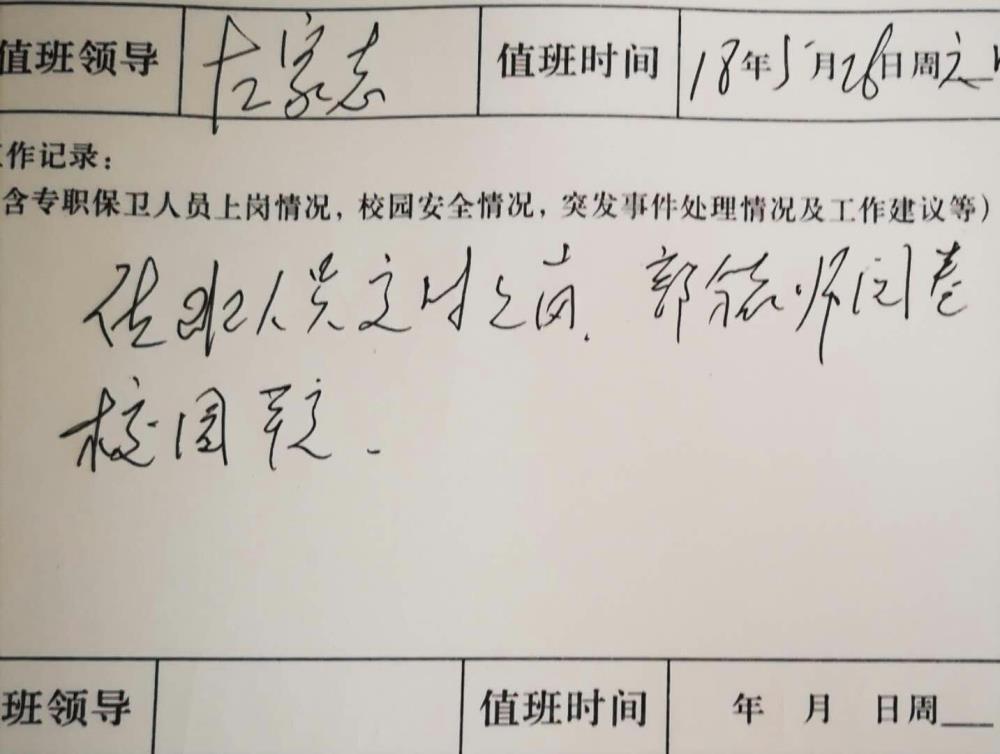 值班领导 左家志 值班时间 18年5月28日周
作记录：
含专职保卫人员上岗情况，校园安全情况，突发事件处理情况及工作建议等）
值班人员 上岗. 郭 师阅卷
校园
班领导 值班时间 年 月 日周